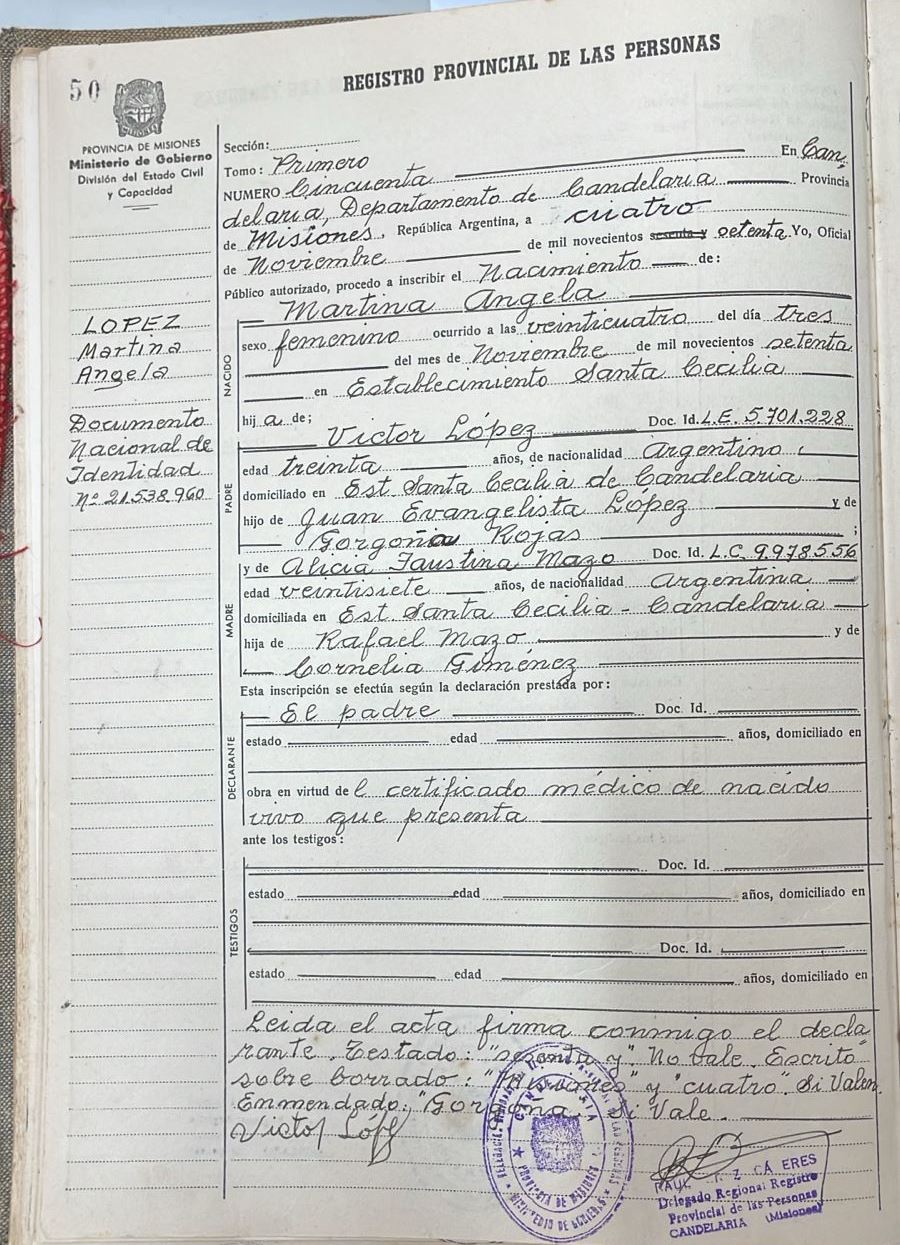 50
REGISTRO PROVINCIAL DE LAS PERSONAS
PROVINCIA DE MISIONES
Ministerio de Gobierno
División del Estado Civil
y Capacidad
LOPEZ
Martina
Angela
Documento
Nacional de
Identidad
Nº 21.538.960
Sección:
Tomo: Primero En Can,
NUMERO Cincuenta Provincia
delaria, Departamento de Candelaria
de Misiones, República Argentina, a cuatro
de Noviembre de mil novecientos sesenta y setenta Yo, Oficial
Público autorizado, procedo a inscribir el Nacimiento de:
NACIDO
Martina Angela
sexo femenino ocurrido a las veinticuatro del día tres
del mes de Noviembre de mil novecientos setenta
en Establecimiento Santa Cecilia
hija de;
PADRE
Victor López Doc. Id. L.E. 5.701.228
edad treinta años, de nacionalidad Argentino
domiciliado en Est. Santa Cecilia de Candelaria
hijo de Juan Evangelista López y de
Gorgoña Rojas ;
MADRE
y de Alicia Faustina Mazo Doc. Id. L.C. 9.978.556
edad veintisiete años, de nacionalidad Argentina
domiciliada en Est. Santa Cecilia - Candelaria
hija de Rafael Mazo y de
Cornelia Giménez
Esta inscripción se efectúa según la declaración prestada por:
DECLARANTE
El padre Doc. Id.
estado edad años, domiciliado en
obra en virtud del certificado médico de nacido
vivo que presenta
ante los testigos:
TESTIGOS
Doc. Id.
estado edad años, domiciliado en
Doc. Id.
estado edad años, domiciliado en
Leida el acta firma conmigo el decla
rante. Testado: "sesenta y" No Vale. Escrito
sobre borrado: "Misiones" y "cuatro" Si Valen
Enmendado: "Gorgoña. Si Vale.
Victor Lópz
CANDELARIA
PROVINCIA DE MISIONES
MINISTERIO DE GOBIERNO
Delegado Regional Registro
Provincial de las Personas
CANDELARIA (Misiones)